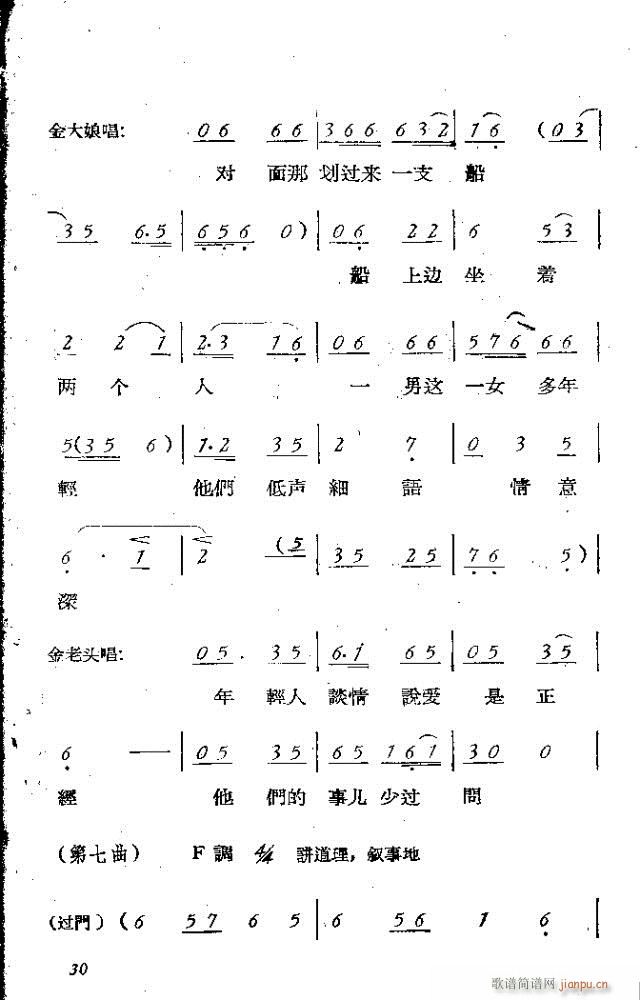 金大娘唱: 0 6 6 6 | 3 6 6 6 3 2 | 1 6 (0 3
对 面那 划过来 一支 船
3 5 6·5 | 6 5 6 0) | 0 6 2 2 | 6 5 3
船 上边 坐 着
2 2 1 | 2·3 1 6 | 0 6 6 6 | 5 7 6 6 6
两 个 人 一 男这 一女 多年
5(3 5 6) | 1·2 3 5 | 2 7 | 0 3 5
輕 他們 低声 細 語 情 意
6 · 1 | 2 (5 | 3 5 2 5 | 7 6 5)
深
金老头唱: 0 5 3 5 | 6·1 6 5 | 0 5 3 5
年 輕人 談情 說爱 是 正
6 — | 0 5 3 5 | 6 5 1 6 1 | 3 0 0
經 他 們的 事儿 少过 問
(第七曲) F調 4/4 講道理，叙事地
(过門) (6 5 7 6 5 | 6 5 6 1 6
30
歌谱简谱网 jianpu.cn